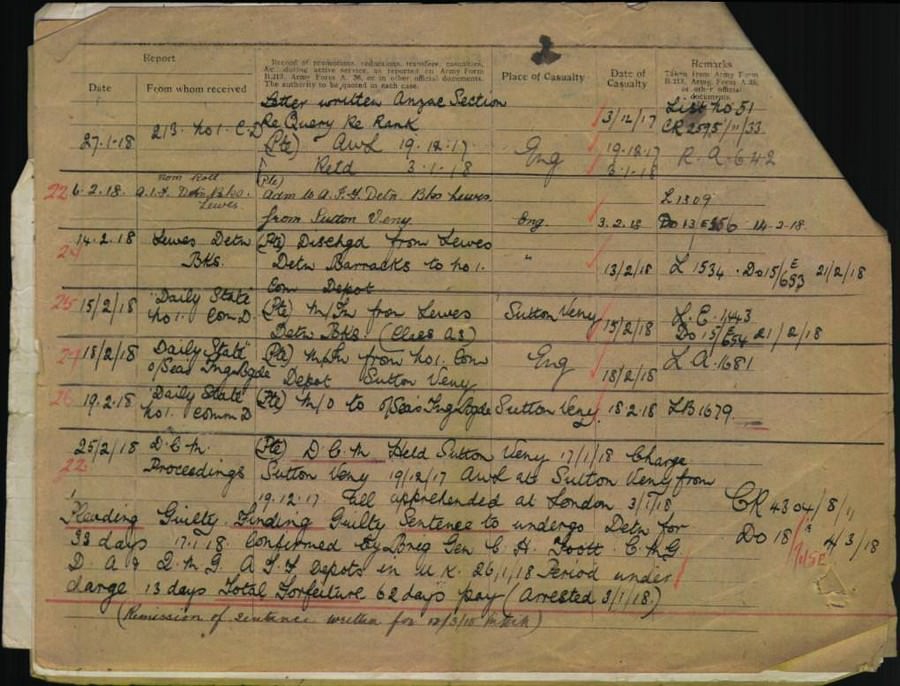 Report
Record of promotions, reductions, transfers, casualties,
&c., during active service, as reported on Army Form
B.213, Army Form A. 36, or in other official documents.
The authority to be quoted in each case.
Place of Casualty
Date of
Casualty
Remarks
Taken from Army Form
B.213, Army Form A.36,
or other official
documents.
Date
From whom received
Letter written Anzac Section
Re Query Re Rank 3/12/17 List No 51 CR 2595/11/33
27.1.18 213. No 1. C.D (Pte) AWL 19.12.17 Eng 19.12.17 R.A. 642
Retd 3.1.18 3.1.18
22 6.2.18. Nom Roll A.I.F. Detn Bks. Lewes (Pte)
Adm to A.I.F. Detn Bks Lewes L 1309
from Sutton Veny. Eng. 3.2.18 14.2.18
14.2.18 Lewes Detn (Pte) Dischgd from Lewes
Bks. Detn Barracks to No 1. " 13/2/18 L 1534. Do 15/E 653 21/2/18
Com Depot
25 15/2/18 Daily State (Pte) M/In from Lewes Sutton Veny L.E. 1443
No 1. Com D. Detn Bks (Class A3) 15/2/18 Do 15/E 654 21/2/18
18/2/18 Daily State (Pte) M/In from No 1. Com Eng L A.1681
O/Seas Tng Bgde Depot Sutton Veny 18/2/18
26 19.2.18 Daily State (Pte) M/O to O/Seas Tng Bgde Sutton Veny 18.2.18 LB1679
No 1. Comm D
25/2/18 D.C.M. (Pte) D.C.M Held Sutton Veny 17/1/18 Charge
22 Proceedings Sutton Veny 19/12/17 AWL at Sutton Veny from
19.12.17 till apprehended at London 3/1/18 CR 4304/8/11
Pleading Guilty. Finding Guilty Sentence to undergo Detn for Do 18/ 4/3/18
33 days 17.1.18. Confirmed by Brig Gen C. H. Foott C.M.G
D.A & Q.M.G. A.I.F Depots in U.K. 26/1/18 Period under
charge 13 days Total Forfeiture 62 days pay (Arrested 3/1/18.)
(Remission of sentence written for